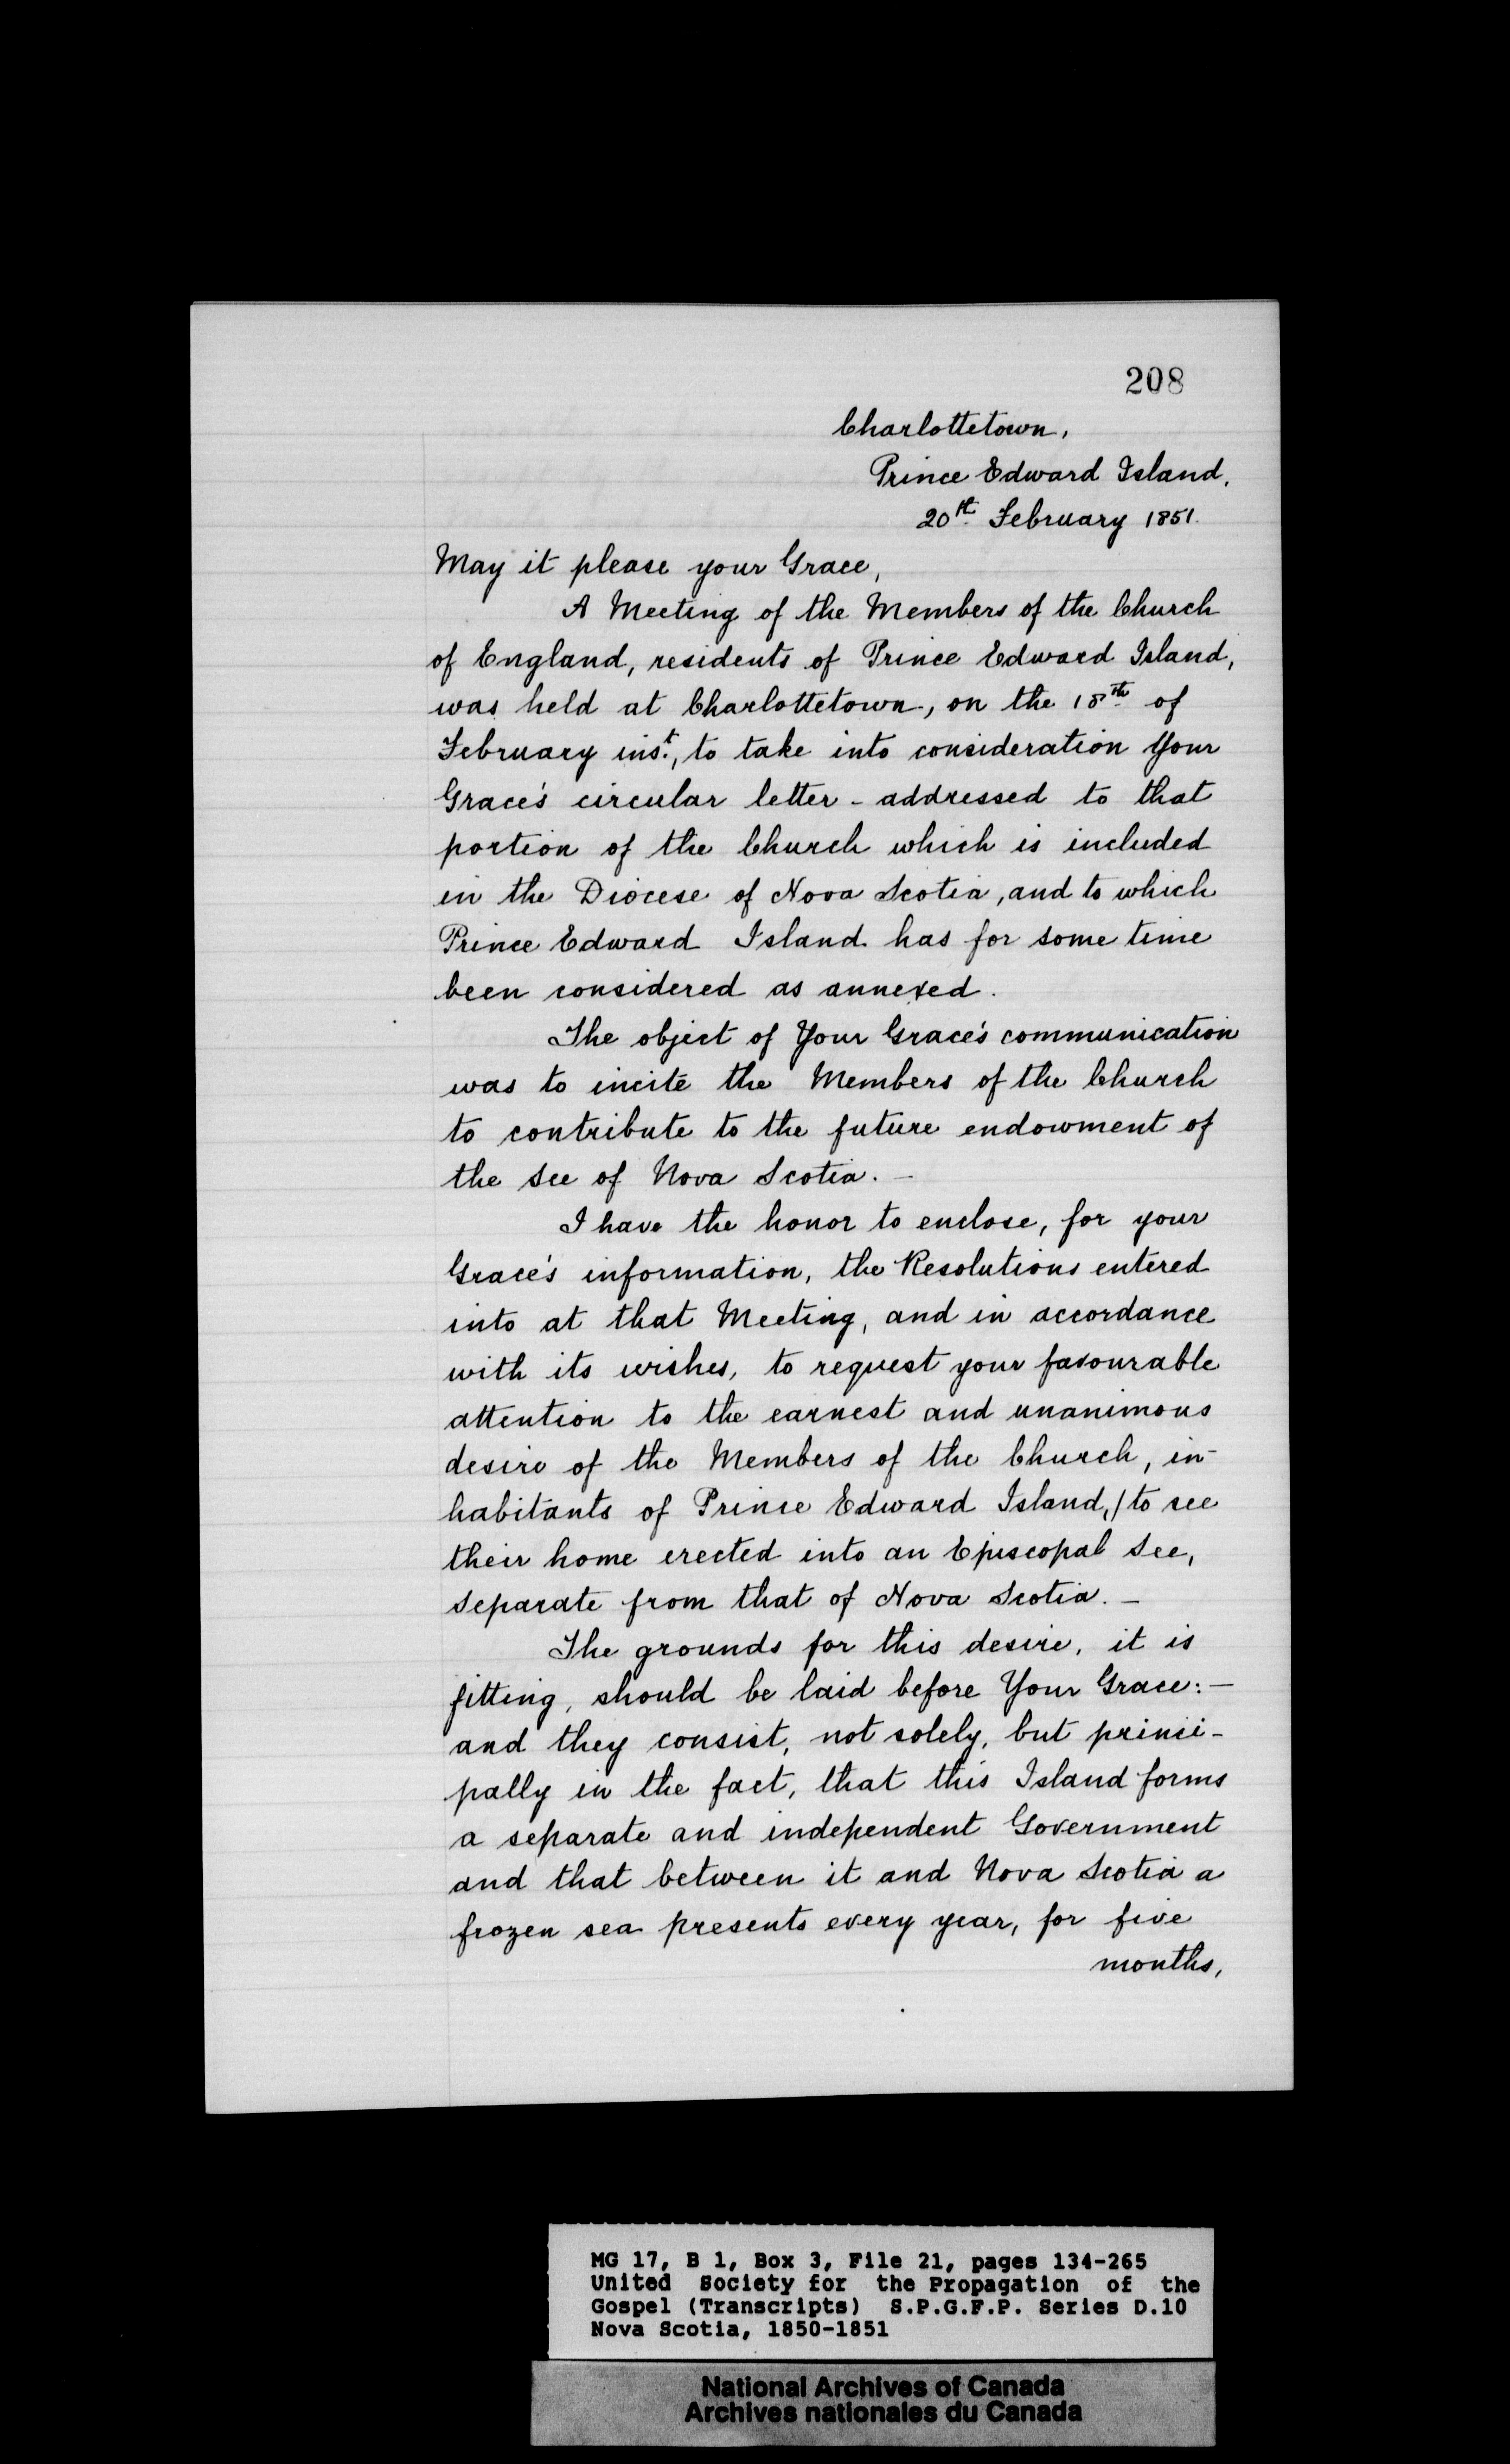 208
Charlottetown,
Prince Edward Island,
20th February 1851.
May it please your Grace,
A Meeting of the Members of the Church
of England, residents of Prince Edward Island,
was held at Charlottetown, on the 18th of
February inst., to take into consideration Your
Grace's circular letter - addressed to that
portion of the Church which is included
in the Diocese of Nova Scotia, and to which
Prince Edward Island has for some time
been considered as annexed.
The object of Your Grace's communication
was to incite the Members of the Church
to contribute to the future endowment of
the See of Nova Scotia. -
I have the honor to enclose, for your
Grace's information, the Resolutions entered
into at that Meeting, and in accordance
with its wishes, to request your favourable
attention to the earnest and unanimous
desire of the Members of the Church, in-
habitants of Prince Edward Island, / to see
their home erected into an Episcopal See,
separate from that of Nova Scotia. -
The grounds for this desire, it is
fitting, should be laid before Your Grace: -
and they consist, not solely, but princi-
pally in the fact, that this Island forms
a separate and independent Government
and that between it and Nova Scotia a
frozen sea presents every year, for five
months,
MG 17, B 1, Box 3, File 21, pages 134-265
United Society for the Propagation of the
Gospel (Transcripts) S.P.G.F.P. Series D.10
Nova Scotia, 1850-1851
National Archives of Canada
Archives nationales du Canada